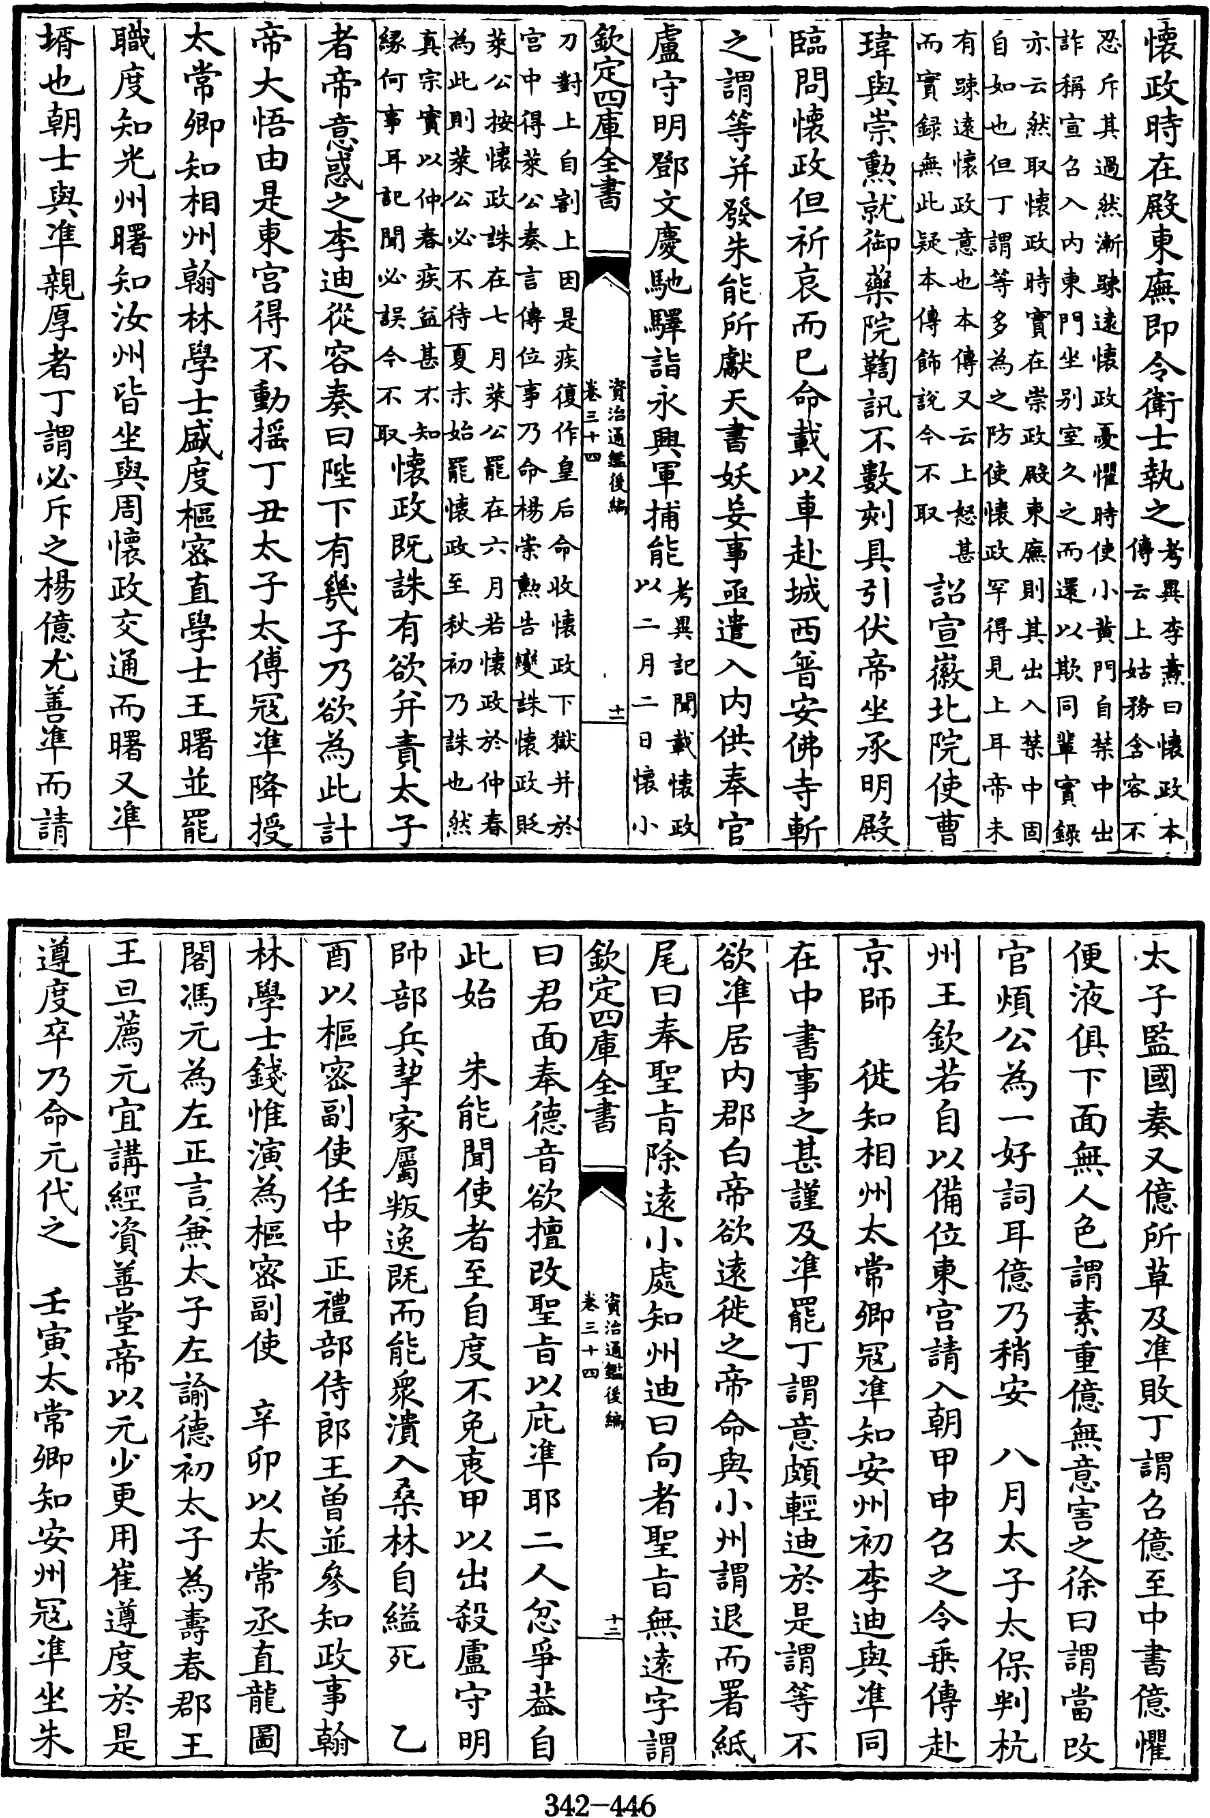 懷政時在殿東廡即令衛士執之
考異李燾曰懷政本
傳云上姑務含容不
忍斥其過然漸踈遠懷政憂懼時使小黄門自禁中出
詐稱宣召入内東門坐别室久之而還以欺同輩實録
亦云然取懷政時實在崇政殿東廡則其出入禁中固
自如也但丁謂等多為之防使懷政罕得見上耳帝未
有踈遠懷政意也本傳又云上怒甚
而實録無此疑本傳飾說今不取
詔宣徽北院使曹
瑋與崇勲就御藥院鞫訊不數刻具引伏帝坐承明殿
臨問懷政但祈哀而已命載以車赴城西普安佛寺斬
之謂等并發朱能所獻天書妖妄事亟遣入内供奉官
盧守明鄧文慶馳驛詣永興軍捕能
考異記聞載懷政
以二月二日懷小
欽定四庫全書
資治通鑑後編
卷三十四
十一
刀對上自割上因是疾復作皇后命收懷政下獄并於
宫中得萊公奏言傳位事乃命楊崇勲告變誅懷政貶
萊公按懷政誅在七月萊公罷在六月若懷政於仲春
為此則萊公必不待夏末始罷懷政至秋初乃誅也然
真宗實以仲春疾益甚不知
縁何事耳記聞必誤今不取
懷政既誅有欲并責太子
者帝意惑之李迪從容奏曰陛下有幾子乃欲為此計
帝大悟由是東宫得不動揺丁丑太子太傅冦凖降授
太常卿知相州翰林學士盛度樞密直學士王曙並罷
職度知光州曙知汝州皆坐與周懷政交通而曙又凖
壻也朝士與凖親厚者丁謂必斥之楊億尤善凖而請
太子監國奏又億所草及凖敗丁謂召億至中書億懼
便液俱下面無人色謂素重億無意害之徐曰謂當改
官煩公為一好詞耳億乃稍安　八月太子太保判杭
州王欽若自以備位東宫請入朝甲申召之令乘傳赴
京師　徙知相州太常卿冦凖知安州初李迪與凖同
在中書事之甚謹及凖罷丁謂意頗輕迪於是謂等不
欲凖居内郡白帝欲逺徙之帝命與小州謂退而署紙
尾曰奉聖旨除逺小處知州迪曰向者聖旨無逺字謂
欽定四庫全書
資治通鑑後編
卷三十四
十二
曰君面奉德音欲擅改聖旨以庇凖耶二人忿爭葢自
此始　朱能聞使者至自度不免衷甲以出殺盧守明
帥部兵挈家屬叛逸既而能衆潰入桑林自縊死　乙
酉以樞密副使任中正禮部侍郎王曾並參知政事翰
林學士錢惟演為樞密副使　辛卯以太常丞直龍圖
閣馮元為左正言兼太子左諭德初太子為壽春郡王
王旦薦元宜講經資善堂帝以元少更用崔遵度於是
遵度卒乃命元代之　壬寅太常卿知安州冦凖坐朱
342-446